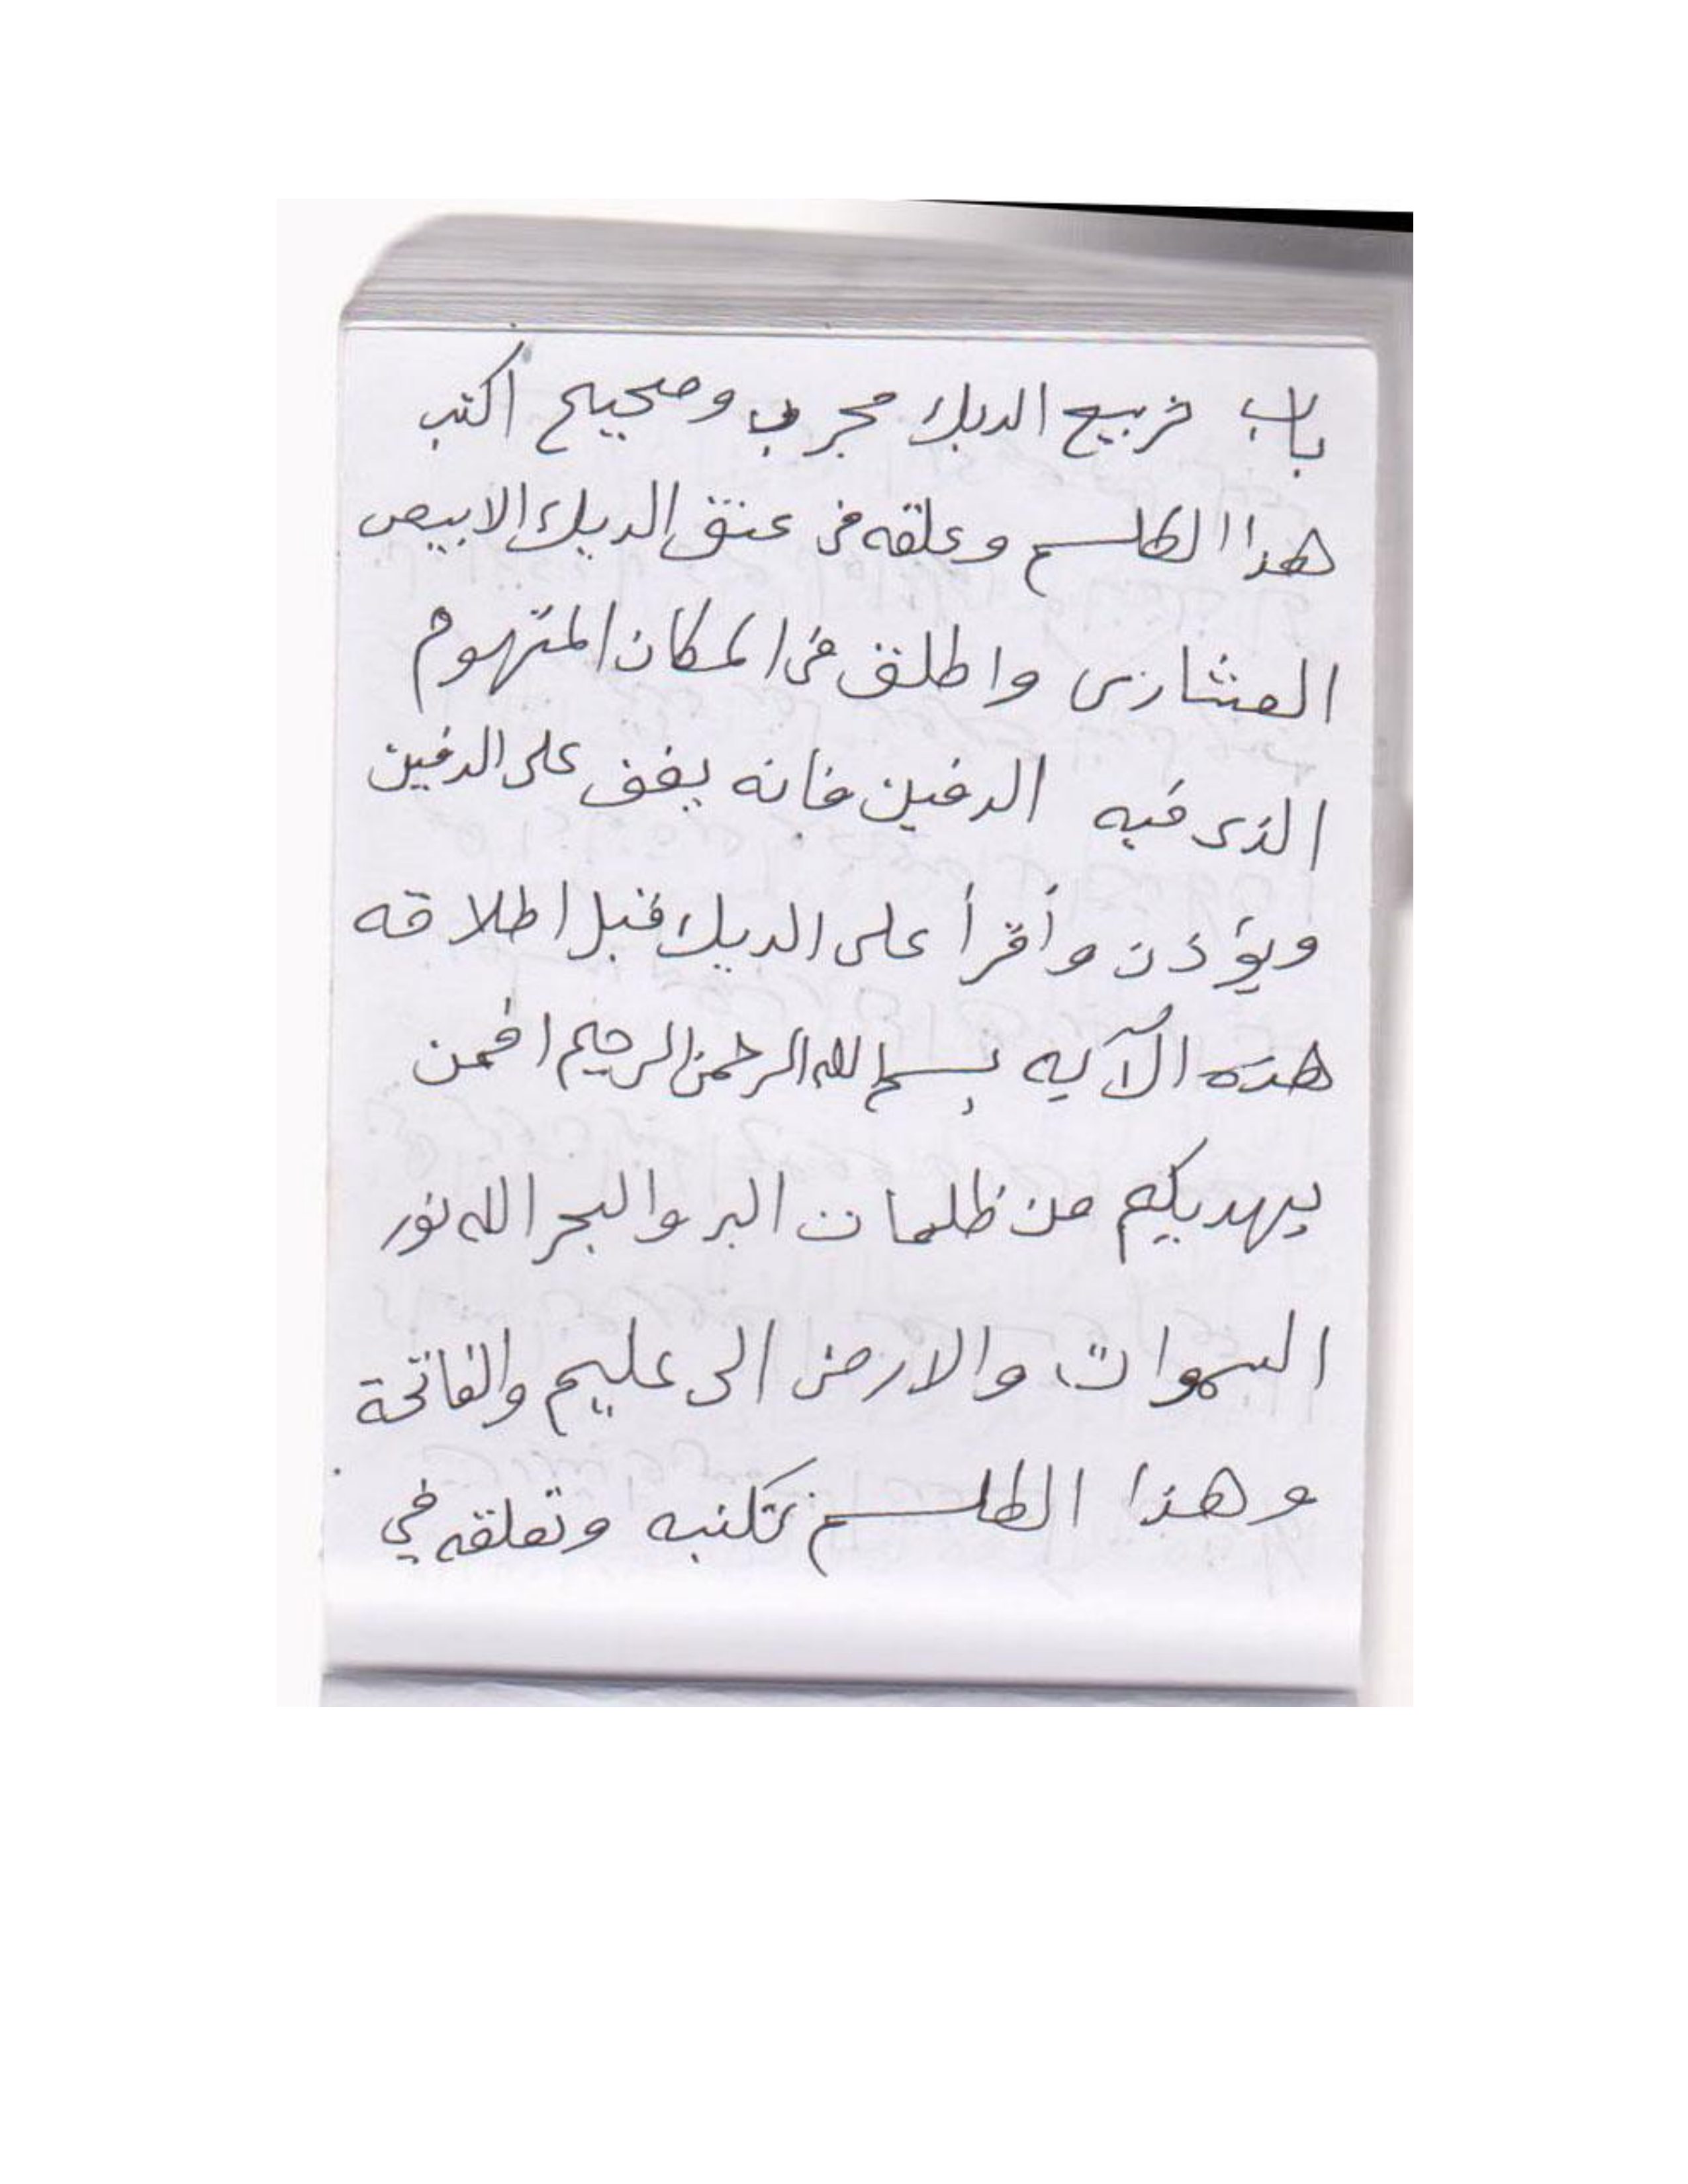 باب فربيع الديك مجرب وصحيح أكتب
هدا الطلسم وعلقه فى عنق الديك الابيض
العشارى واطلق فى المكان المتهوم
الذى فيه الدفين فانه يقف على الدفين
ويؤذن وأقرأ على الديك قبل اطلاقه
هذه الآيه بسم الله الرحمن الرحيم افمن
يهديكم من ظلمات البر والبحر الله نور
السموات والارض الى عليم والفاتحة
وهذا الطلسم تكتبه وتعلقه في